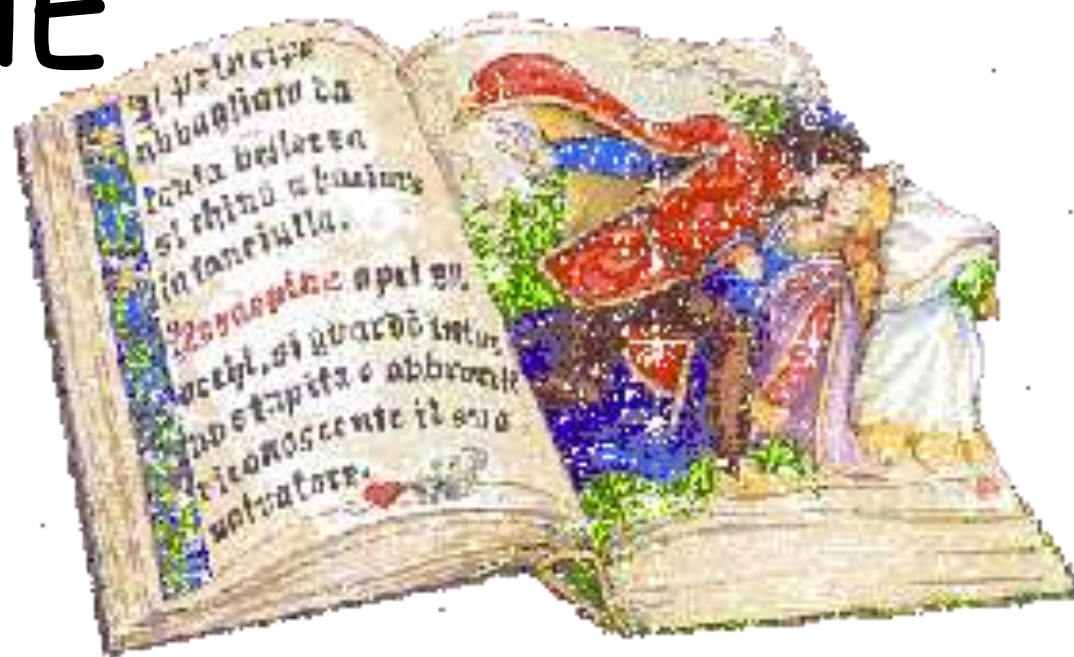 IE
il principe
abbagliato da
tanta bellezza
si chinò a baciare
la fanciulla.
Rosaspina aprì gli
occhi, si guardò intor
no stupita e abbracciò
riconoscente il suo
salvatore.